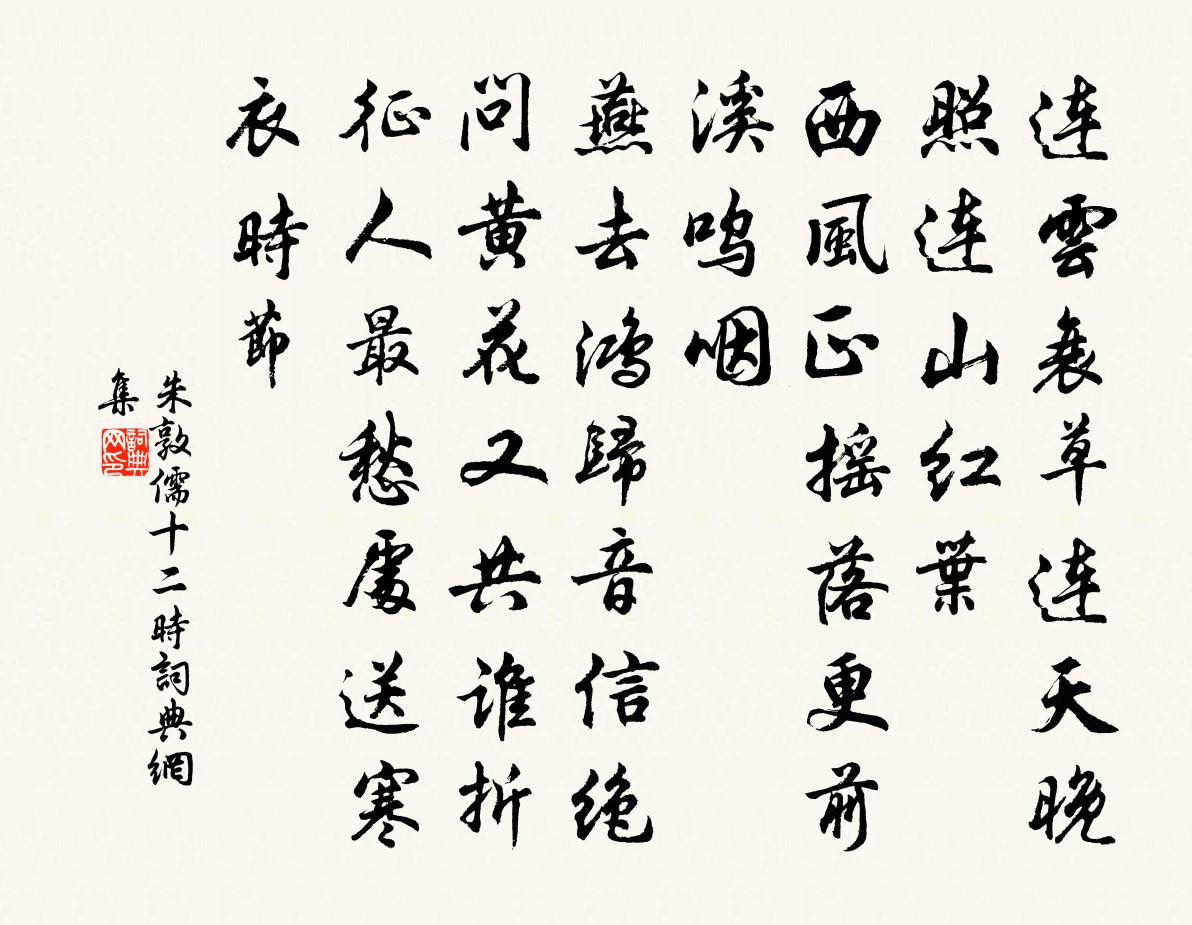 連雲衰草連天晚
照連山紅葉
西風正搖落更前
溪鳴咽
燕去鴻歸音信絕
問黃花又共誰折
征人最愁處送寒
衣時節
朱敦儒十二時詞典網
集
詞典網印